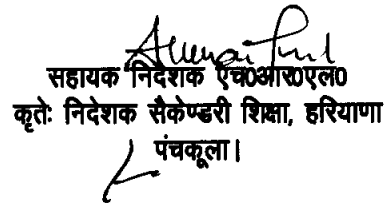 सहायक निदेशक एच0आर0एल0
कृतेः निदेशक सैकेण्डरी शिक्षा, हरियाणा
पंचकूला।